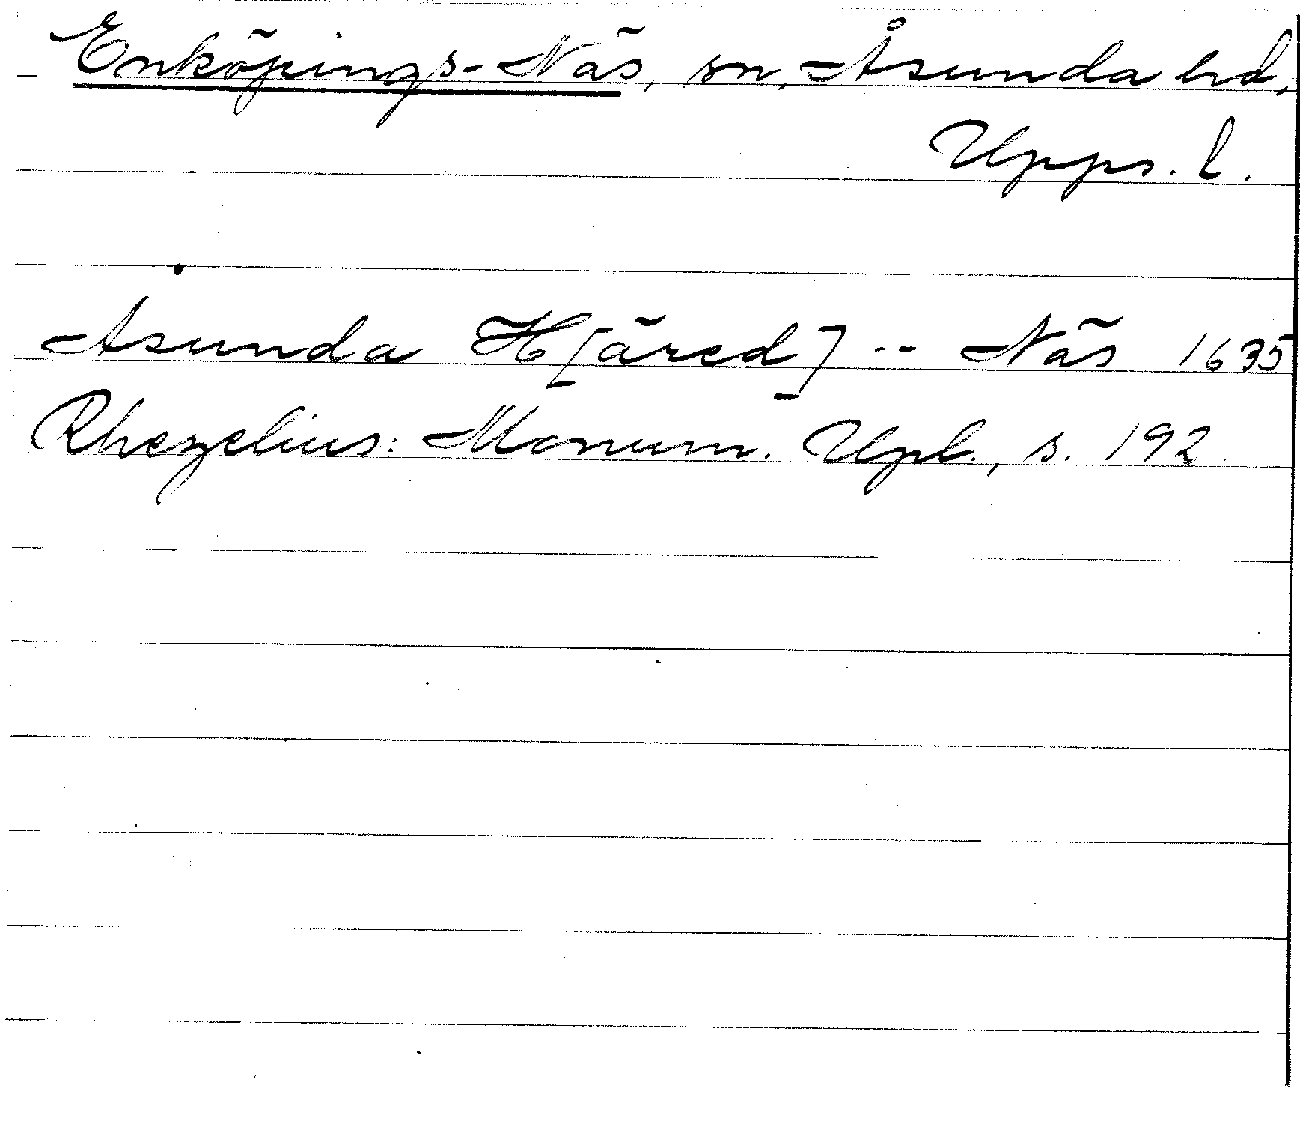 Enköpings-Näs, sn, Åsunda hd,
Upps. l.
Asunda H[äred] -- Näs 1635
Rhezelius: Monum. Upl., s. 192